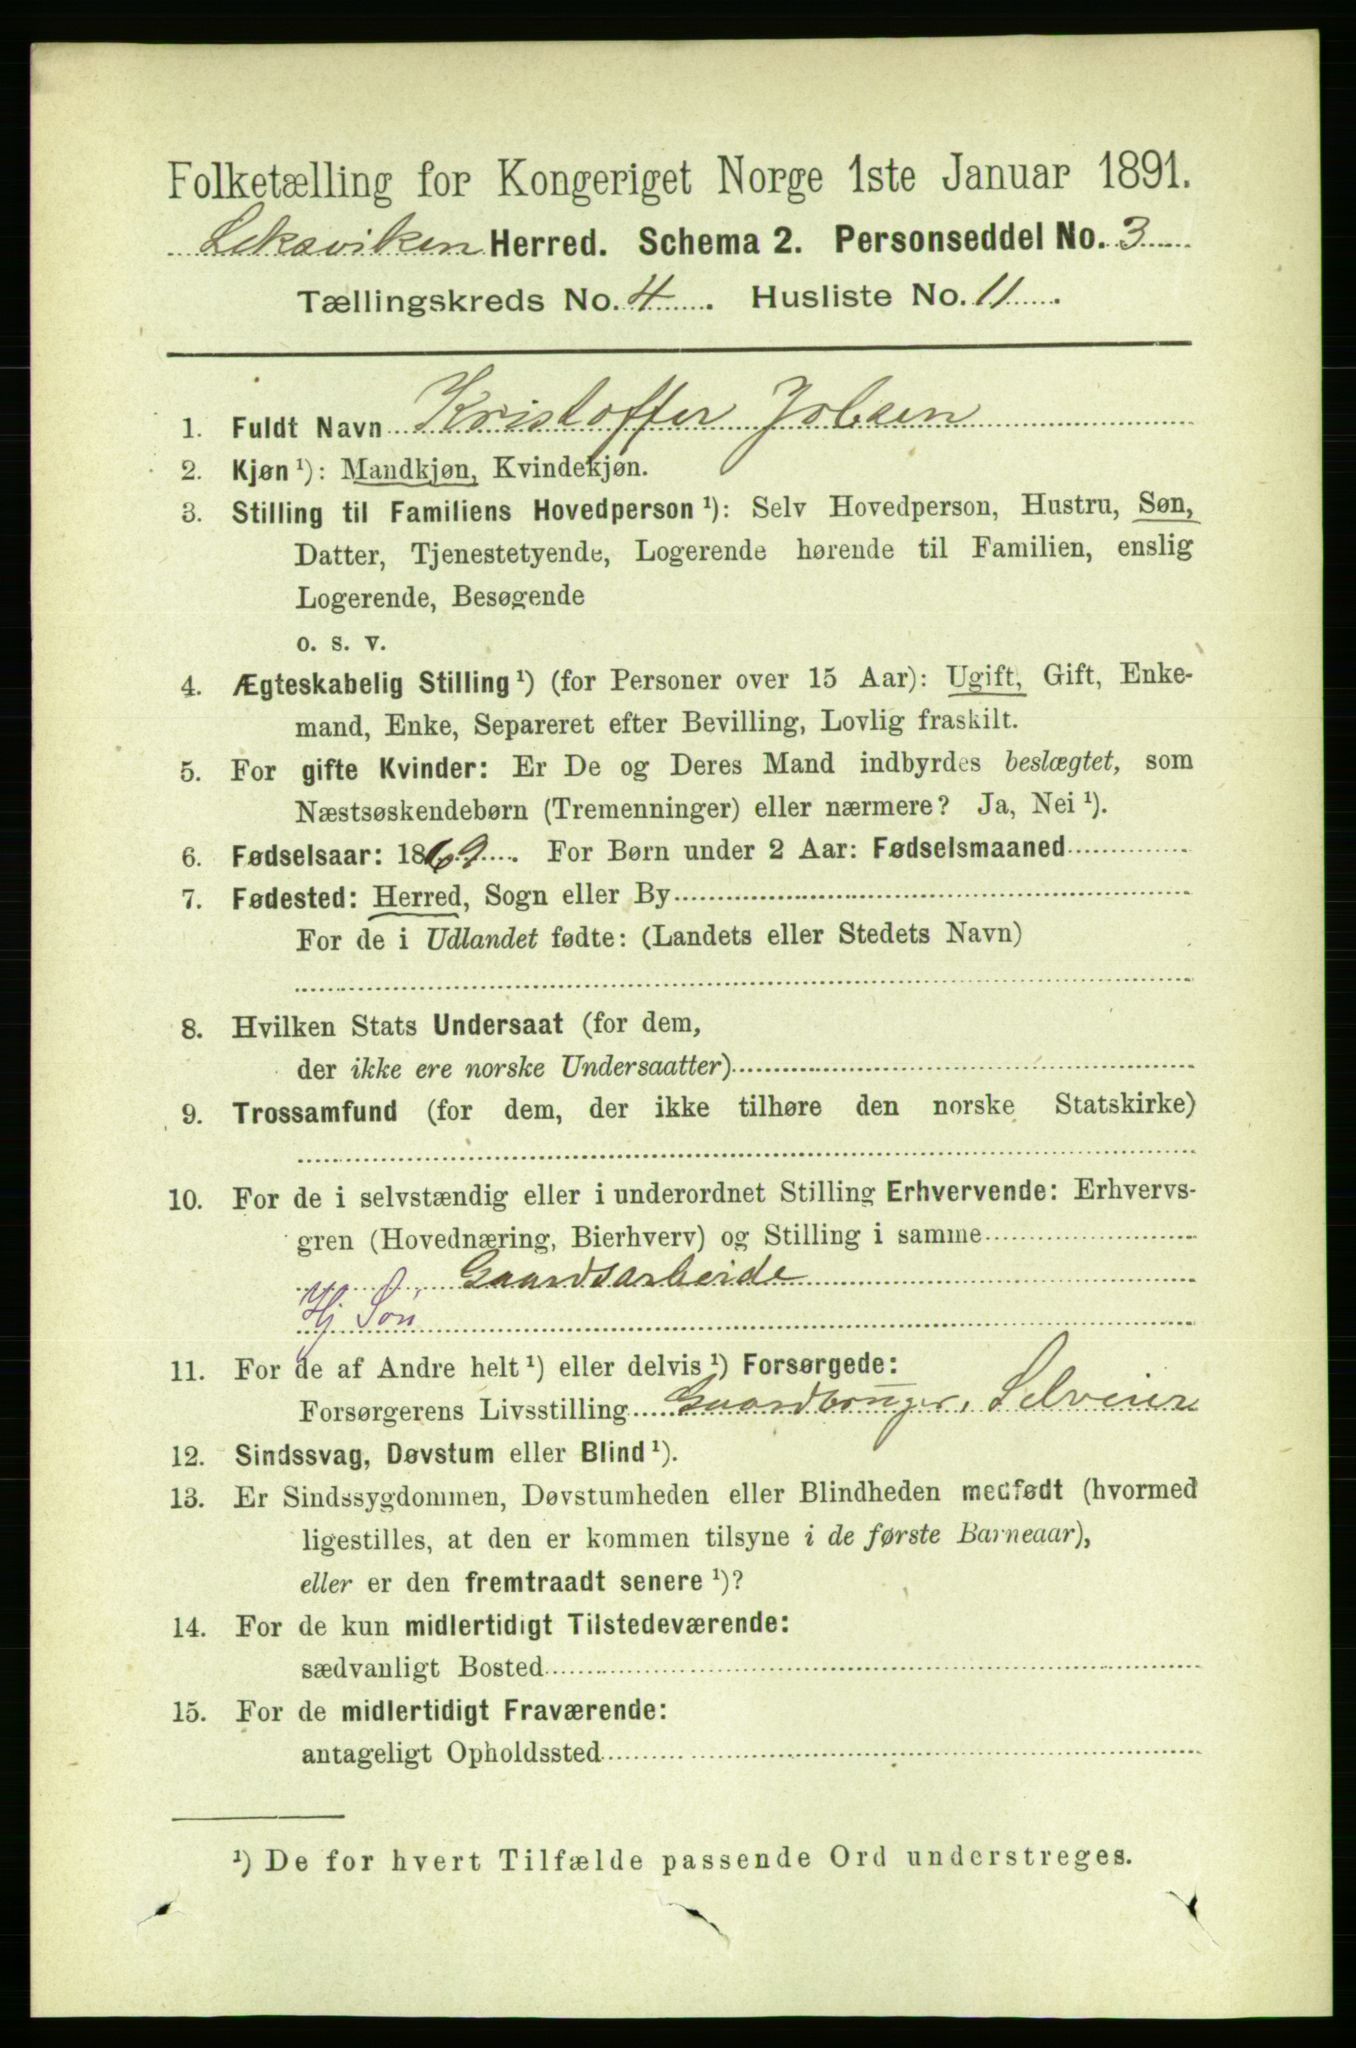 Folketælling for Kongeriget Norge 1ste Januar 1891.
Leksviken Herred. Schema 2. Personseddel No. 3
Tællingskreds No. 4. Husliste No. 11.
1. Fuldt Navn Kristoffer Jobsen
2. Kjøn ¹): Mandkjøn, Kvindekjøn.
3. Stilling til Familiens Hovedperson ¹): Selv Hovedperson, Hustru, Søn,
Datter, Tjenestetyende, Logerende hørende til Familien, enslig
Logerende, Besøgende
o. s. v.
4. Ægteskabelig Stilling ¹) (for Personer over 15 Aar): Ugift, Gift, Enke-
mand, Enke, Separeret efter Bevilling, Lovlig fraskilt.
5. For gifte Kvinder: Er De og Deres Mand indbyrdes beslægtet, som
Næstsøskendebørn (Tremenninger) eller nærmere? Ja, Nei ¹).
6. Fødselsaar: 1869. For Børn under 2 Aar: Fødselsmaaned
7. Fødested: Herred, Sogn eller By
For de i Udlandet fødte: (Landets eller Stedets Navn)
8. Hvilken Stats Undersaat (for dem,
der ikke ere norske Undersaatter)
9. Trossamfund (for dem, der ikke tilhøre den norske Statskirke)
10. For de i selvstændig eller i underordnet Stilling Erhvervende: Erhvervs-
gren (Hovednæring, Bierhverv) og Stilling i samme
Gaardsarbeide
Hj Søn
11. For de af Andre helt ¹) eller delvis ¹) Forsørgede:
Forsørgerens Livsstilling Gaardbruger, Selveier
12. Sindssvag, Døvstum eller Blind ¹).
13. Er Sindssygdommen, Døvstumheden eller Blindheden medfødt (hvormed
ligestilles, at den er kommen tilsyne i de første Barneaar),
eller er den fremtraadt senere ¹)?
14. For de kun midlertidigt Tilstedeværende:
sædvanligt Bosted
15. For de midlertidigt Fraværende:
antageligt Opholdssted
¹) De for hvert Tilfælde passende Ord understreges.